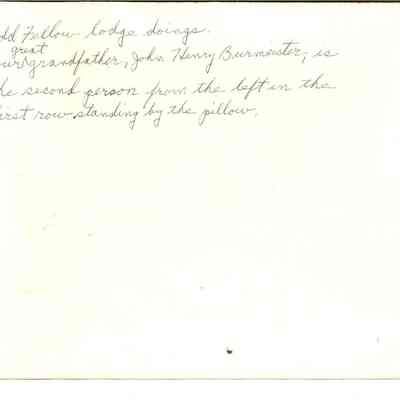 Odd Fellow lodge doings.
great
Our grandfather, John Henry Burmeister, is
the second person from the left in the
first row standing by the pillow.